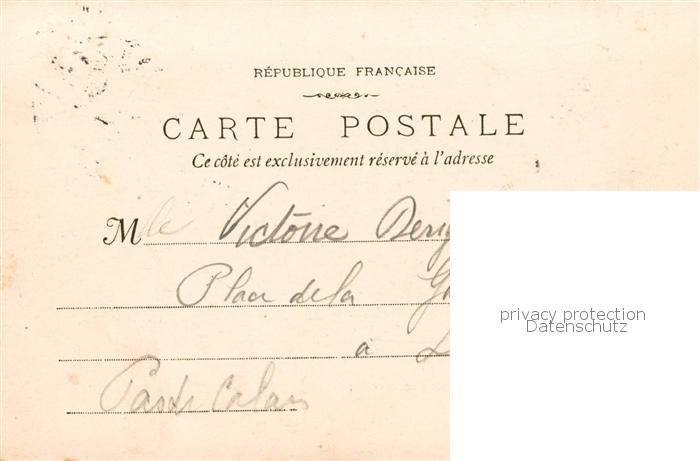 RÉPUBLIQUE FRANÇAISE
CARTE POSTALE
Ce côté est exclusivement réservé à l'adresse
Mlle Victoire
Place de la
à
Pas de Calais
privacy protection
Datenschutz